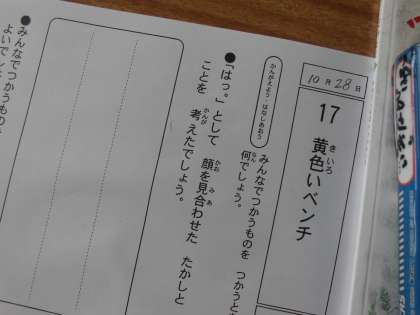 10月28日
17 黄色いベンチ
きいろ
かんがえよう・はなしあおう
みんなでつかうものを つかうと
何でしょう。
なん
●「はっ。」として 顔を見合わせた たかしと
かお みあ
ことを 考えたでしょう。
かんが
●みんなでつかうものを
よいでし